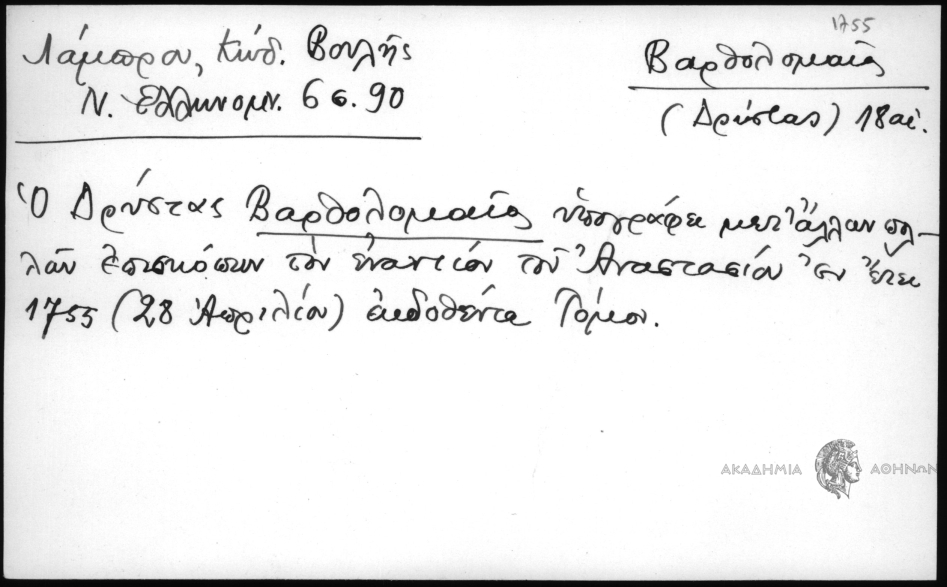 1755
Λάμπρου, Κώδ. Βουλῆς
Ν. Ἑλληνομν. 6 σ. 90
Βαρθολομαῖος
(Δρύστας) 18 αἰ.
Ὁ Δρύστας Βαρθολομαῖος ὑπογράφει μετ' ἄλλων πολ-
λῶν ἐπισκόπων τὸν ἐναντίον τοῦ Ἀναστασίου ἐν ἔτει
1755 (28 Ἀπριλίου) ἐκδοθέντα Τόμον.
ΑΚΑΔΗΜΙΑ ΑΘΗΝΩΝ